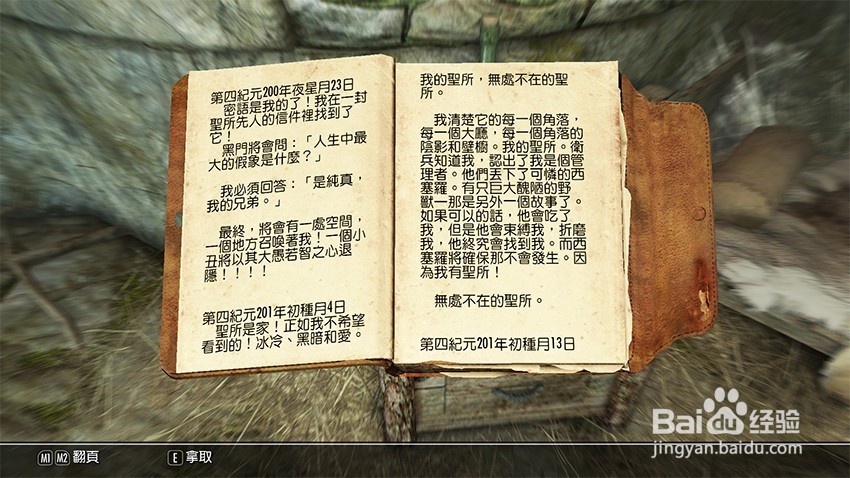 第四紀元200年夜星月23日
密語是我的了！我在一封
聖所先人的信件裡找到了
它！
黑門將會問：「人生中最
大的假象是什麼？」
我必須回答：「是純真，
我的兄弟。」
最終，將會有一處空間，
一個地方召喚著我！一個小
丑將以其大愚若智之心退
隱！！！！
第四紀元201年初種月4日
聖所是家！正如我不希望
看到的！冰冷、黑暗和愛。
我的聖所，無處不在的聖
所。
我清楚它的每一個角落，
每一個大廳，每一個角落的
陰影和壁櫥。我的聖所。衛
兵知道我，認出了我是個管
理者。他們丟下了可憐的西
塞羅。有只巨大醜陋的野
獸—那是另外一個故事了。
如果可以的話，他會吃了
我，但是他會束縛我，折磨
我，他終究會找到我。而西
塞羅將確保那不會發生。因
為我有聖所！
無處不在的聖所。
第四紀元201年初種月13日
M1 M2 翻頁
E 拿取
Bai du 经验
jingyan.baidu.com